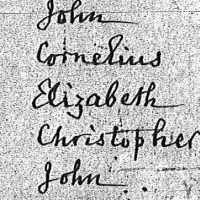 John
Cornelius
Elizabeth
Christopher
John